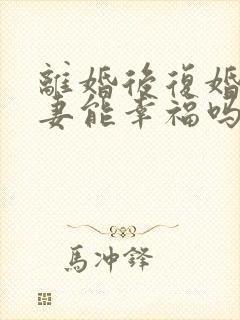 離婚後復婚
妻能幸福吗
馬冲鋒